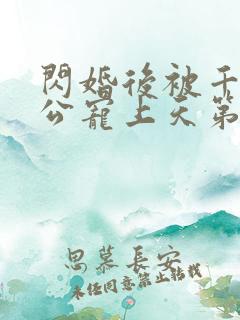 閃婚後被千
公寵上天第
思慕長安
未經同意禁止轉載